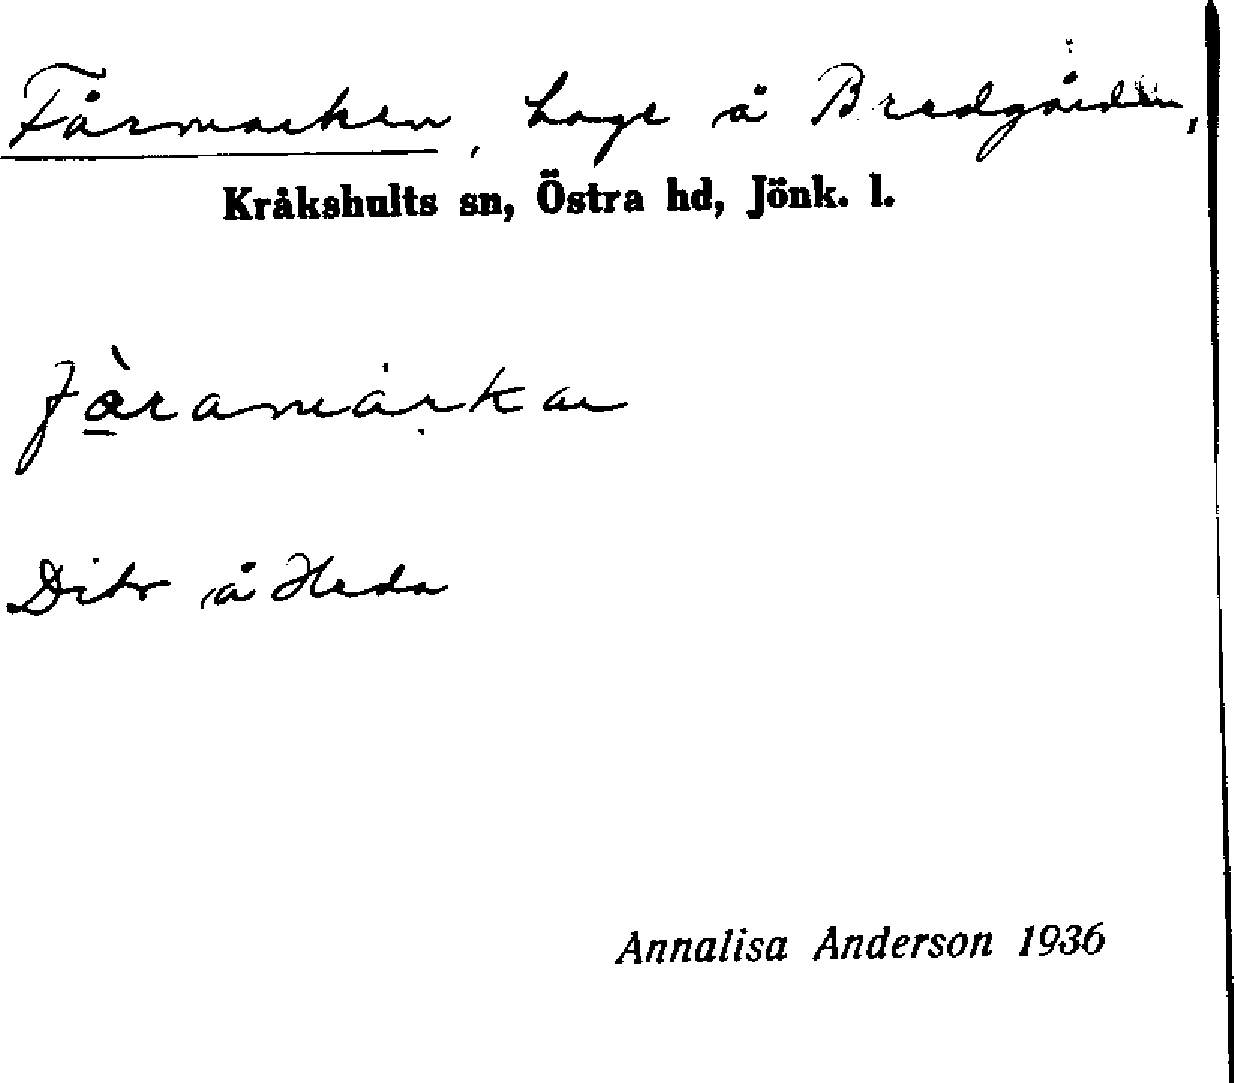 Fårmarken, hage å Bredgården,
Kråkshults sn, Östra hd, Jönk. l.
fàramárkan
Dito å Heda
Annalisa Anderson 1936